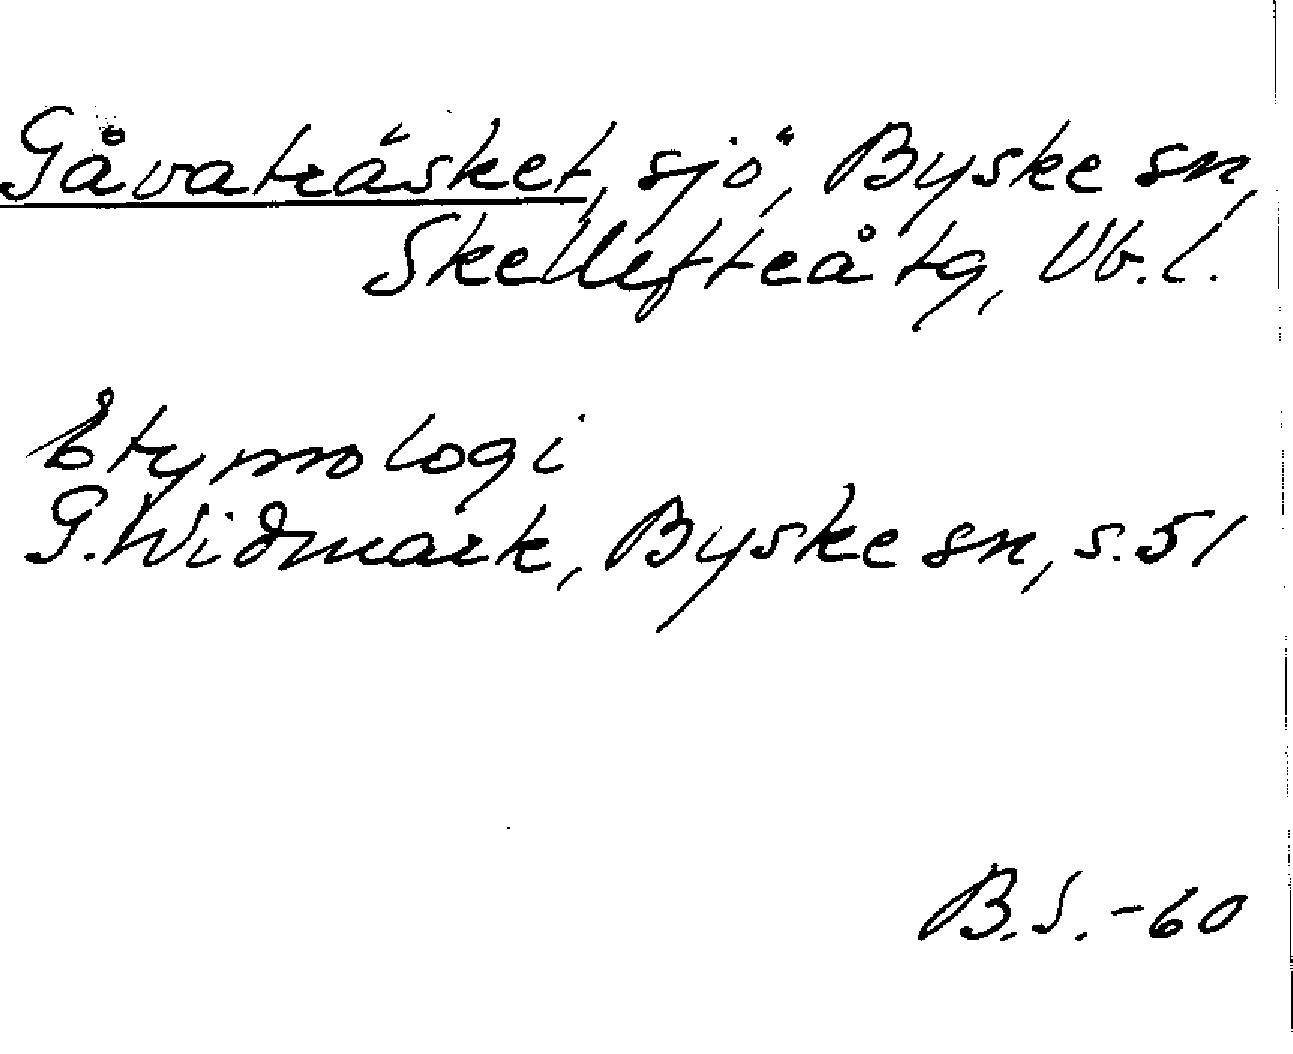 Gåvaträsket, sjö, Byske sn,
Skellefteå tg, Vb. l.
Etymologi
G. Widmark, Byske sn, s. 51
B.S. -60